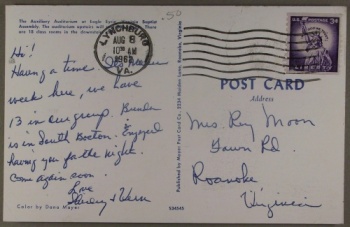 .50
The Auxiliary Auditorium at Eagle Eyrie, Baptist
Assembly. The auditorium upstairs will
are 18 class rooms in the downstairs
LYNCHBURG
AUG 8
10 AM
1962
VA.
U.S. POSTAGE 3¢
LIBERTY
Hi!
Having a time
week here, we have
13 in our group.
is in South Boston. Enjoyed
having you for the night.
Come again soon.
Love
POST CARD
Address
Mrs. Roy Moon
Fawn Rd.
Roanoke
Virginia
Published by Mayer Post Card Co. 2524 Maiden Lane, Roanoke, Virginia
Color by Dana Mayer